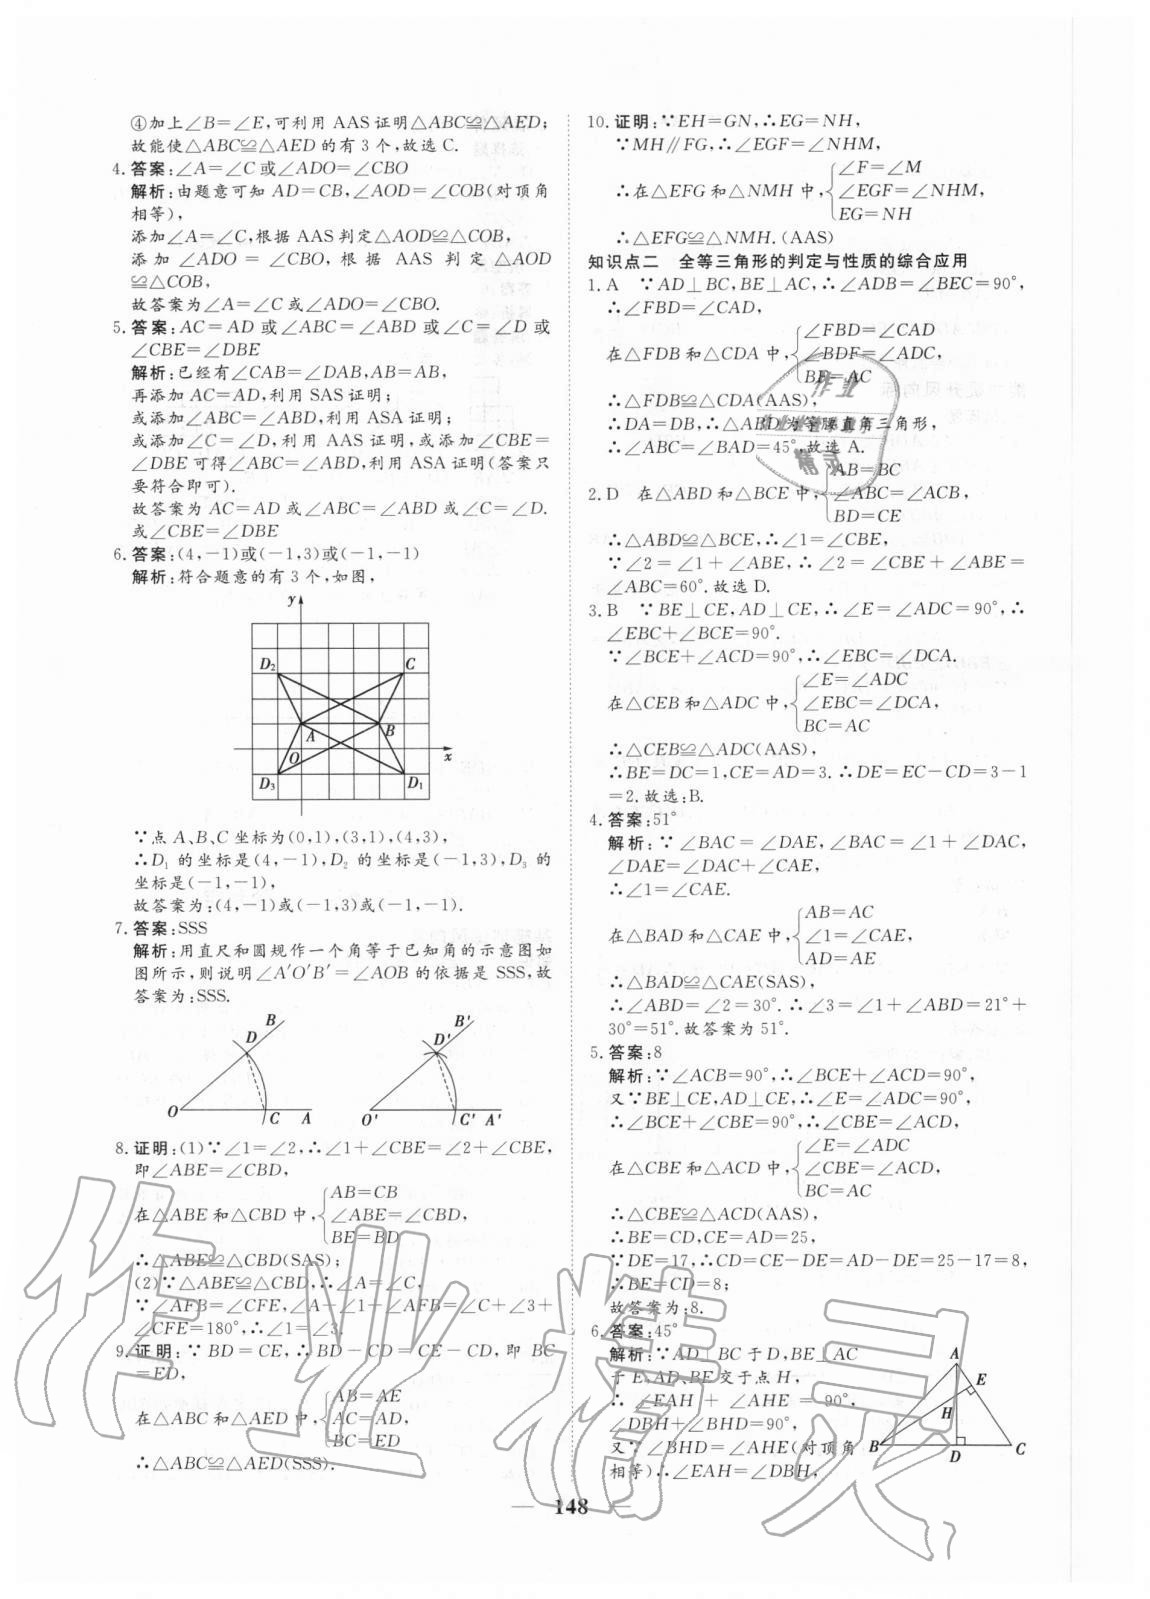 ④加上∠B=∠E,可利用 AAS 证明△ABC≌△AED;
故能使△ABC≌△AED 的有 3 个,故选 C.
4. 答案:∠A=∠C 或∠ADO=∠CBO
解析:由题意可知 AD=CB,∠AOD=∠COB(对顶角
相等),
添加∠A=∠C,根据 AAS 判定△AOD≌△COB,
添加∠ADO=∠CBO,根据 AAS 判定△AOD
≌△COB,
故答案为∠A=∠C 或∠ADO=∠CBO.
5. 答案:AC=AD 或∠ABC=∠ABD 或∠C=∠D 或
∠CBE=∠DBE
解析:已经有∠CAB=∠DAB,AB=AB,
再添加 AC=AD,利用 SAS 证明;
或添加∠ABC=∠ABD,利用 ASA 证明;
或添加∠C=∠D,利用 AAS 证明,或添加∠CBE=
∠DBE 可得∠ABC=∠ABD,利用 ASA 证明(答案只
要符合即可).
故答案为 AC=AD 或∠ABC=∠ABD 或∠C=∠D.
或∠CBE=∠DBE
6. 答案:(4,-1)或(-1,3)或(-1,-1)
解析:符合题意的有 3 个,如图,
y
D₂ C
A B
O x
D₃ D₁
∵点 A、B、C 坐标为(0,1),(3,1),(4,3),
∴D₁ 的坐标是(4,-1),D₂ 的坐标是(-1,3),D₃ 的
坐标是(-1,-1),
故答案为:(4,-1)或(-1,3)或(-1,-1).
7. 答案:SSS
解析:用直尺和圆规作一个角等于已知角的示意图如
图所示,则说明∠A′O′B′=∠AOB 的依据是 SSS,故
答案为:SSS.
B B′
D D′
O C A O′ C′ A′
8. 证明:(1)∵∠1=∠2,∴∠1+∠CBE=∠2+∠CBE,
即∠ABE=∠CBD,
AB=CB
在△ABE 和△CBD 中,{∠ABE=∠CBD,
BE=BD
∴△ABE≌△CBD(SAS);
(2)∵△ABE≌△CBD,∴∠A=∠C,
∵∠AFB=∠CFE,∠A+∠1+∠AFB=∠C+∠3+
∠CFE=180°,∴∠1=∠3.
9. 证明:∵BD=CE,∴BD-CD=CE-CD,即 BC
=ED,
AB=AE
在△ABC 和△AED 中,{AC=AD,
BC=ED
∴△ABC≌△AED(SSS).
10. 证明:∵EH=GN,∴EG=NH,
∵MH∥FG,∴∠EGF=∠NHM,
∠F=∠M
∴在△EFG 和△NMH 中,{∠EGF=∠NHM,
EG=NH
∴△EFG≌△NMH.(AAS)
知识点二 全等三角形的判定与性质的综合应用
1. A ∵AD⊥BC,BE⊥AC,∴∠ADB=∠BEC=90°,
∴∠FBD=∠CAD,
∠FBD=∠CAD
在△FDB 和△CDA 中,{∠BDF=∠ADC,
BF=AC
∴△FDB≌△CDA(AAS),
∴DA=DB,∴△ABD 为等腰直角三角形,
∴∠ABC=∠BAD=45°,故选 A.
AB=BC
2. D 在△ABD 和△BCE 中,{∠ABC=∠ACB,
BD=CE
∴△ABD≌△BCE,∴∠1=∠CBE,
∵∠2=∠1+∠ABE,∴∠2=∠CBE+∠ABE=
∠ABC=60°.故选 D.
3. B ∵BE⊥CE,AD⊥CE,∴∠E=∠ADC=90°,∴
∠EBC+∠BCE=90°.
∵∠BCE+∠ACD=90°,∴∠EBC=∠DCA.
∠E=∠ADC
在△CEB 和△ADC 中,{∠EBC=∠DCA,
BC=AC
∴△CEB≌△ADC(AAS),
∴BE=DC=1,CE=AD=3.∴DE=EC-CD=3-1
=2.故选:B.
4. 答案:51°
解析:∵∠BAC=∠DAE,∠BAC=∠1+∠DAC,
∠DAE=∠DAC+∠CAE,
∴∠1=∠CAE.
AB=AC
在△BAD 和△CAE 中,{∠1=∠CAE,
AD=AE
∴△BAD≌△CAE(SAS),
∴∠ABD=∠2=30°.∴∠3=∠1+∠ABD=21°+
30°=51°.故答案为 51°.
5. 答案:8
解析:∵∠ACB=90°,∴∠BCE+∠ACD=90°,
又∵BE⊥CE,AD⊥CE,∴∠E=∠ADC=90°,
∴∠BCE+∠CBE=90°,∴∠CBE=∠ACD,
∠E=∠ADC
在△CBE 和△ACD 中,{∠CBE=∠ACD,
BC=AC
∴△CBE≌△ACD(AAS),
∴BE=CD,CE=AD=25,
∵DE=17,∴CD=CE-DE=AD-DE=25-17=8,
∴BE=CD=8;
故答案为:8.
6. 答案:45°
解析:∵AD⊥BC 于 D,BE⊥AC
于 E,AD、BE 交于点 H,
∴∠EAH+∠AHE=90°,
∠DBH+∠BHD=90°,
又∵∠BHD=∠AHE(对顶角
相等)∴∠EAH=∠DBH,
A
E
H
B D C
148
作业
精灵
作业精灵